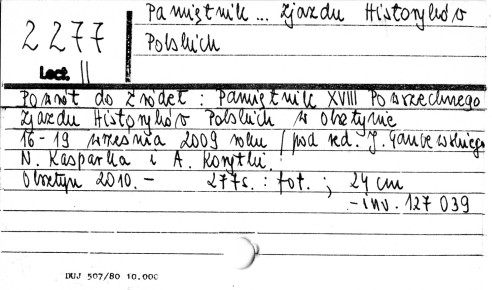 Pamiętnik... Zjazdu Historyków
2277
Polskich
Lect. II
Powrót do źródeł : Pamiętnik XVIII Powszechnego
Zjazdu Historyków Polskich w Olsztynie
16-19 września 2009 roku / pod red. J. Gancewskiego
N. Kasparka i A. Korytki.
Olsztyn 2010. - 277s. : fot. ; 24 cm
- inv. 127 039
DUJ 507/80 10.000